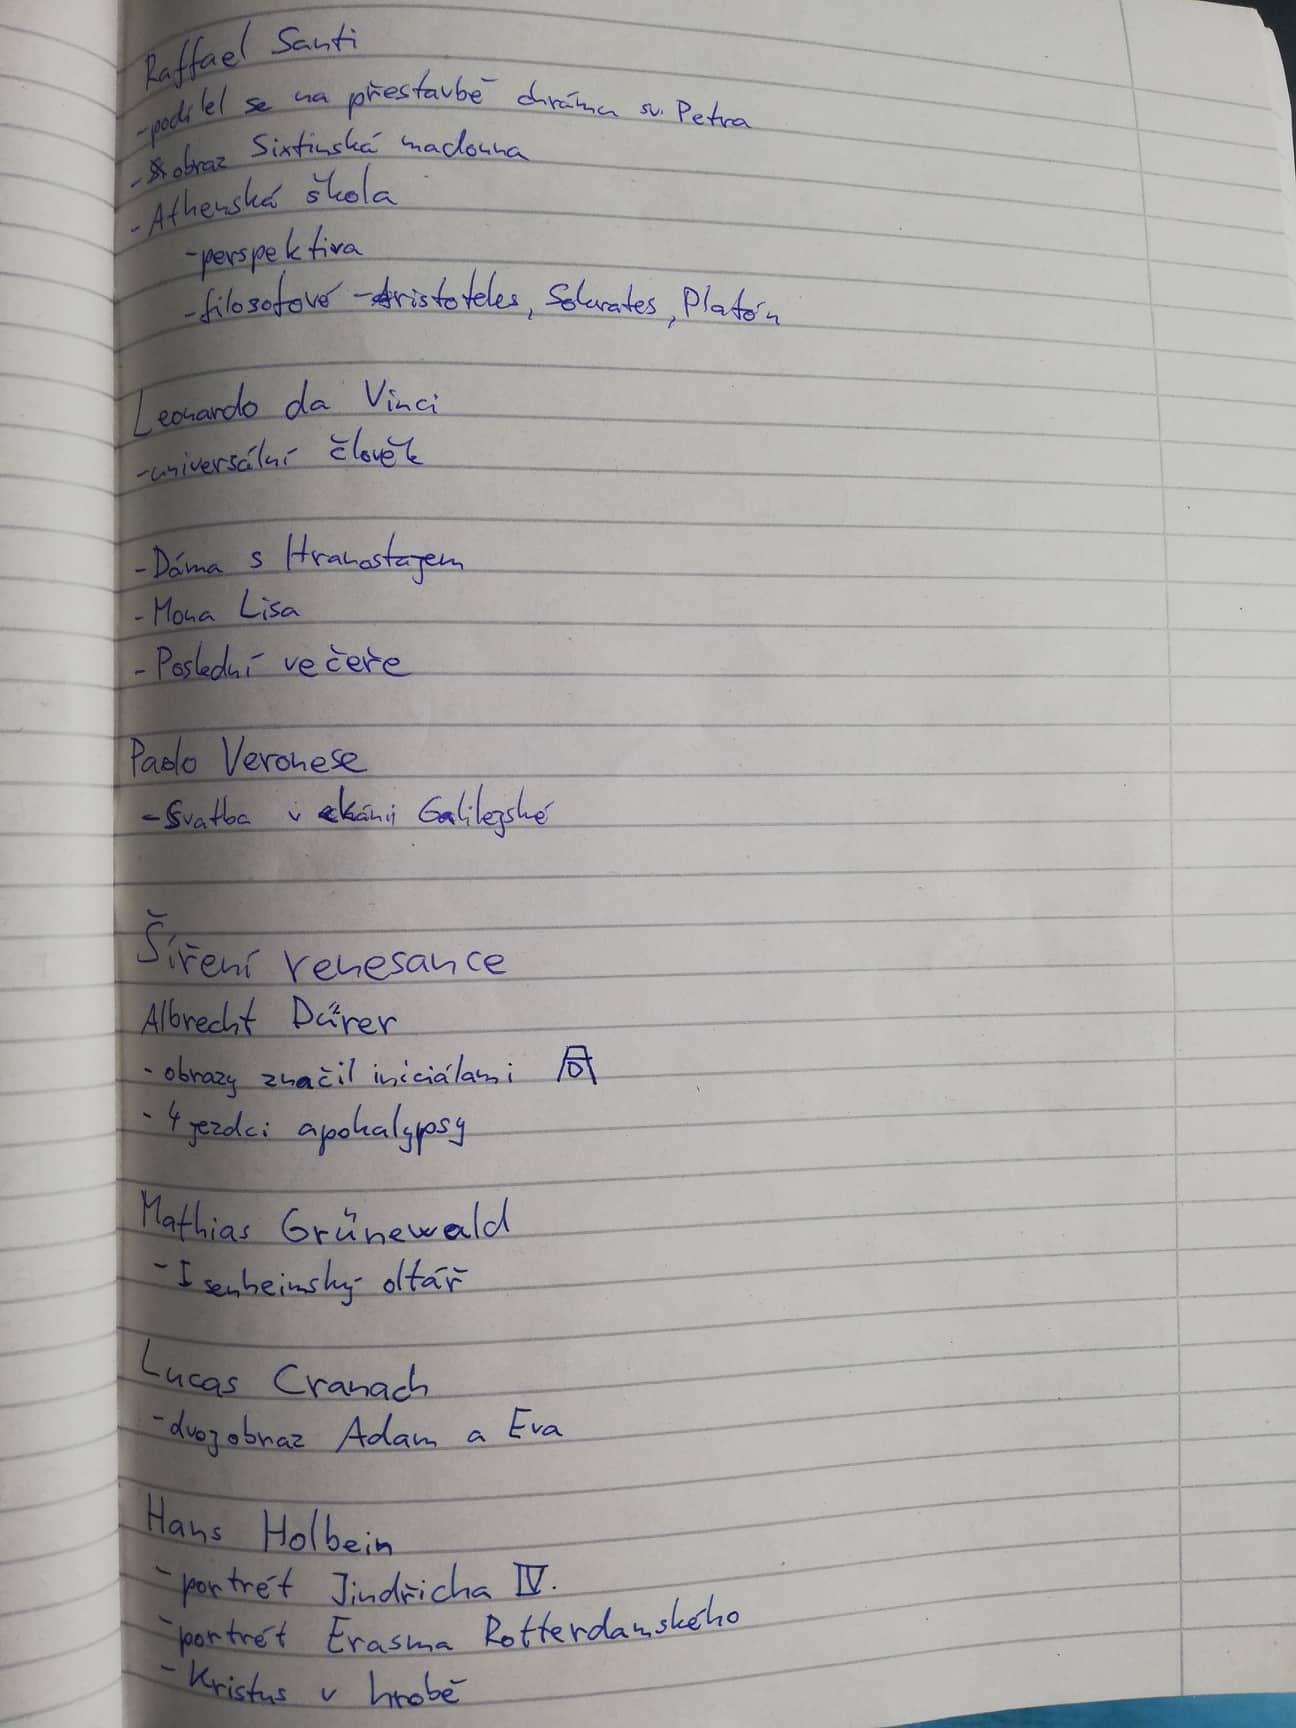 Raffael Santi
-podílel se na přestavbě chrámu sv. Petra
- obraz Sixtinská madonna
- Athenská škola
-perspektiva
-filosofové -Aristoteles, Sokrates, Platón
Leonardo da Vinci
-universální člověk
-Dáma s Hranostajem
- Mona Lisa
- Poslední večeře
Paolo Veronese
-Svatba v káni Galilejské
Šíření renesance
Albrecht Dürer
- obrazy značil iniciálami AD
- 4 jezdci apokalypsy
Mathias Grünewald
-Isenheimský oltář
Lucas Cranach
-dvojobraz Adam a Eva
Hans Holbein
-portrét Jindřicha IV.
-portrét Erasma Rotterdamského
-Kristus v hrobě